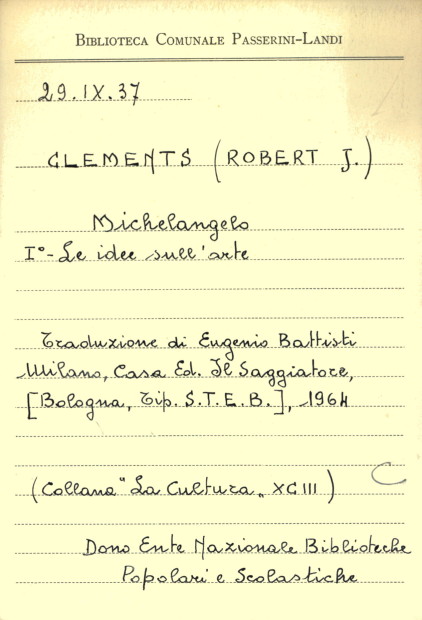 BIBLIOTECA COMUNALE PASSERINI-LANDI
29.IX.37
CLEMENTS (ROBERT J.)
Michelangelo
I°- Le idee sull'arte
Traduzione di Eugenio Battisti
Milano, Casa Ed. Il Saggiatore,
[Bologna, Tip. S.T.E.B.], 1964
(Collana "La Cultura„ XCIII)
Dono Ente Nazionale Biblioteche
Popolari e Scolastiche